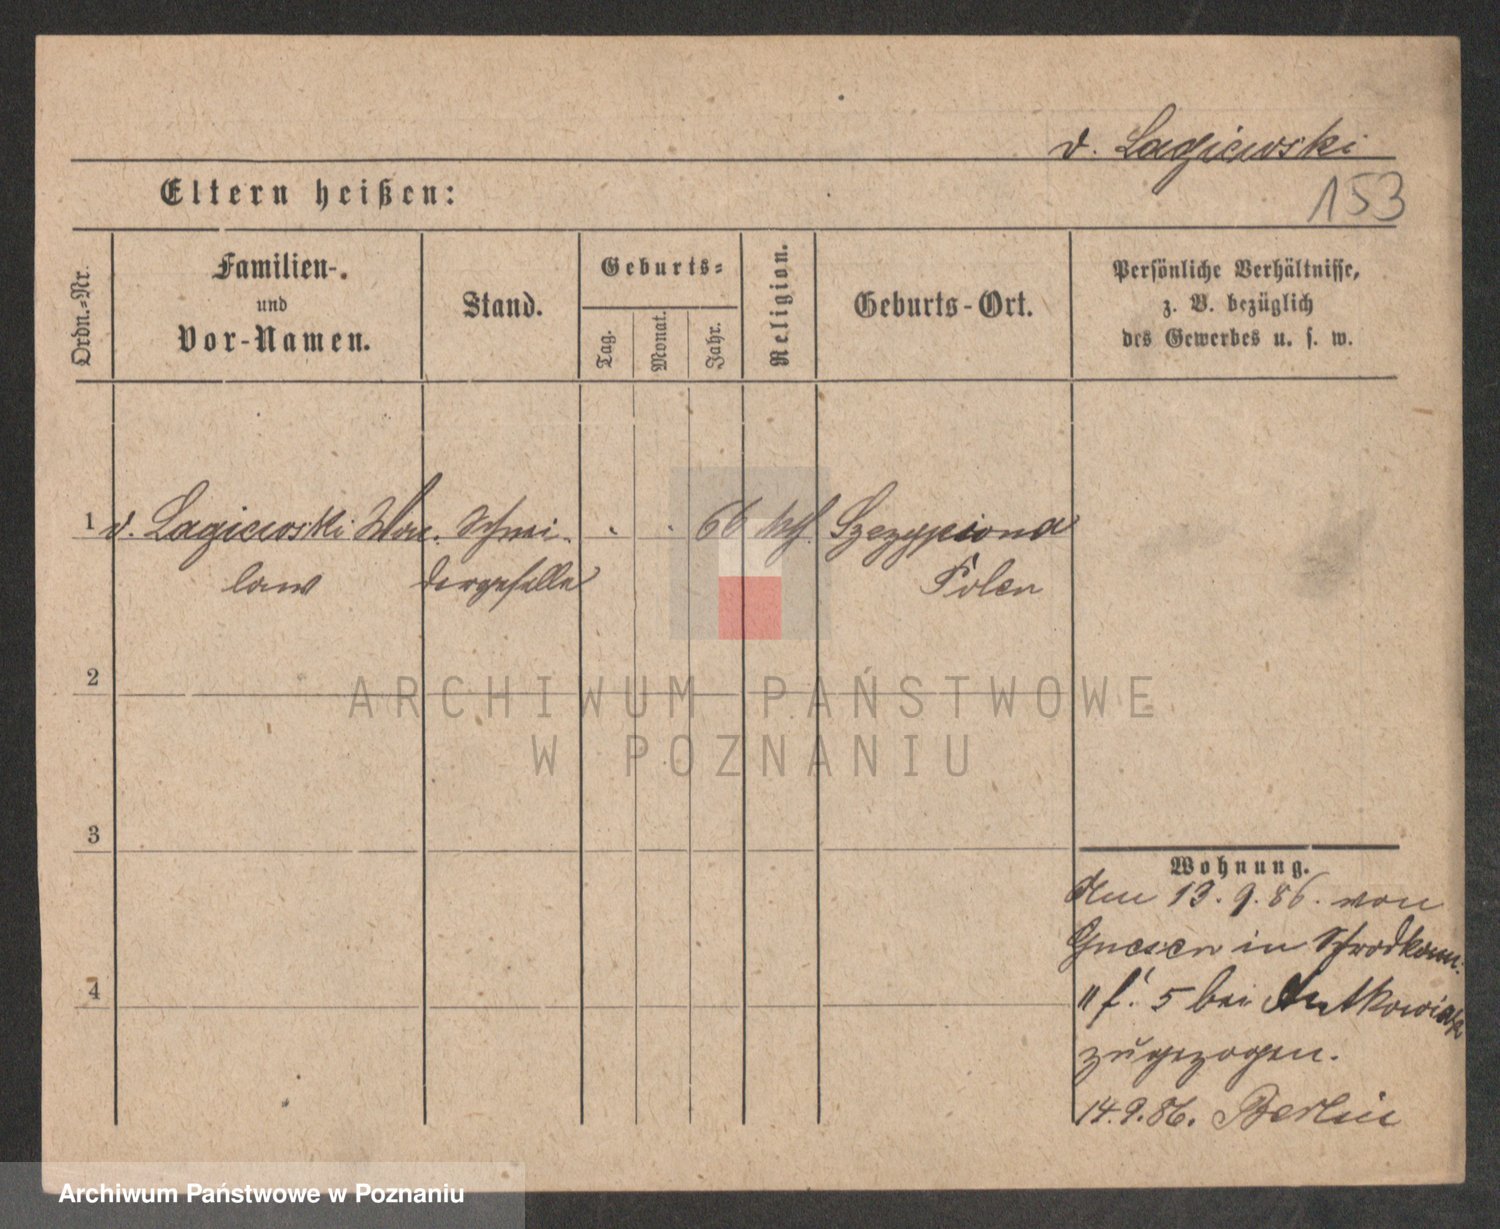 v. Lagiewski
153
Eltern heißen:
Ordn.-Nr.
Familien-
und
Vor-Namen.
Stand.
Geburts-
Tag.
Monat.
Jahr.
Religion.
Geburts-Ort.
Persönliche Verhältnisse,
z. B. bezüglich
des Gewerbes u. s. w.
1 v. Lagiewski Schnei- 66 kth. Szczypiorna
law dergeselle Polen
2
3
4
Wohnung.
Am 13.9.86. von
Gnesen in
5 bei Antkowiak
zugezogen.
14.9.86. Berlin
ARCHIWUM PAŃSTWOWE
W POZNANIU
Archiwum Państwowe w Poznaniu